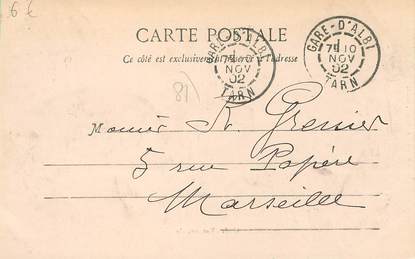 6 €
CARTE POSTALE
Ce côté est exclusivement réservé à l'adresse
GARE-D'ALBI
7E 10
NOV
02
TARN
GARE-D'ALBI
NOV
02
TARN
(81
Monsieur R. Grenier
5 rue Papère
Marseille